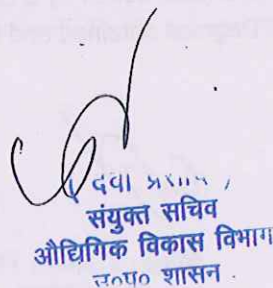 संयुक्त सचिव
औद्योगिक विकास विभाग
उ०प्र० शासन